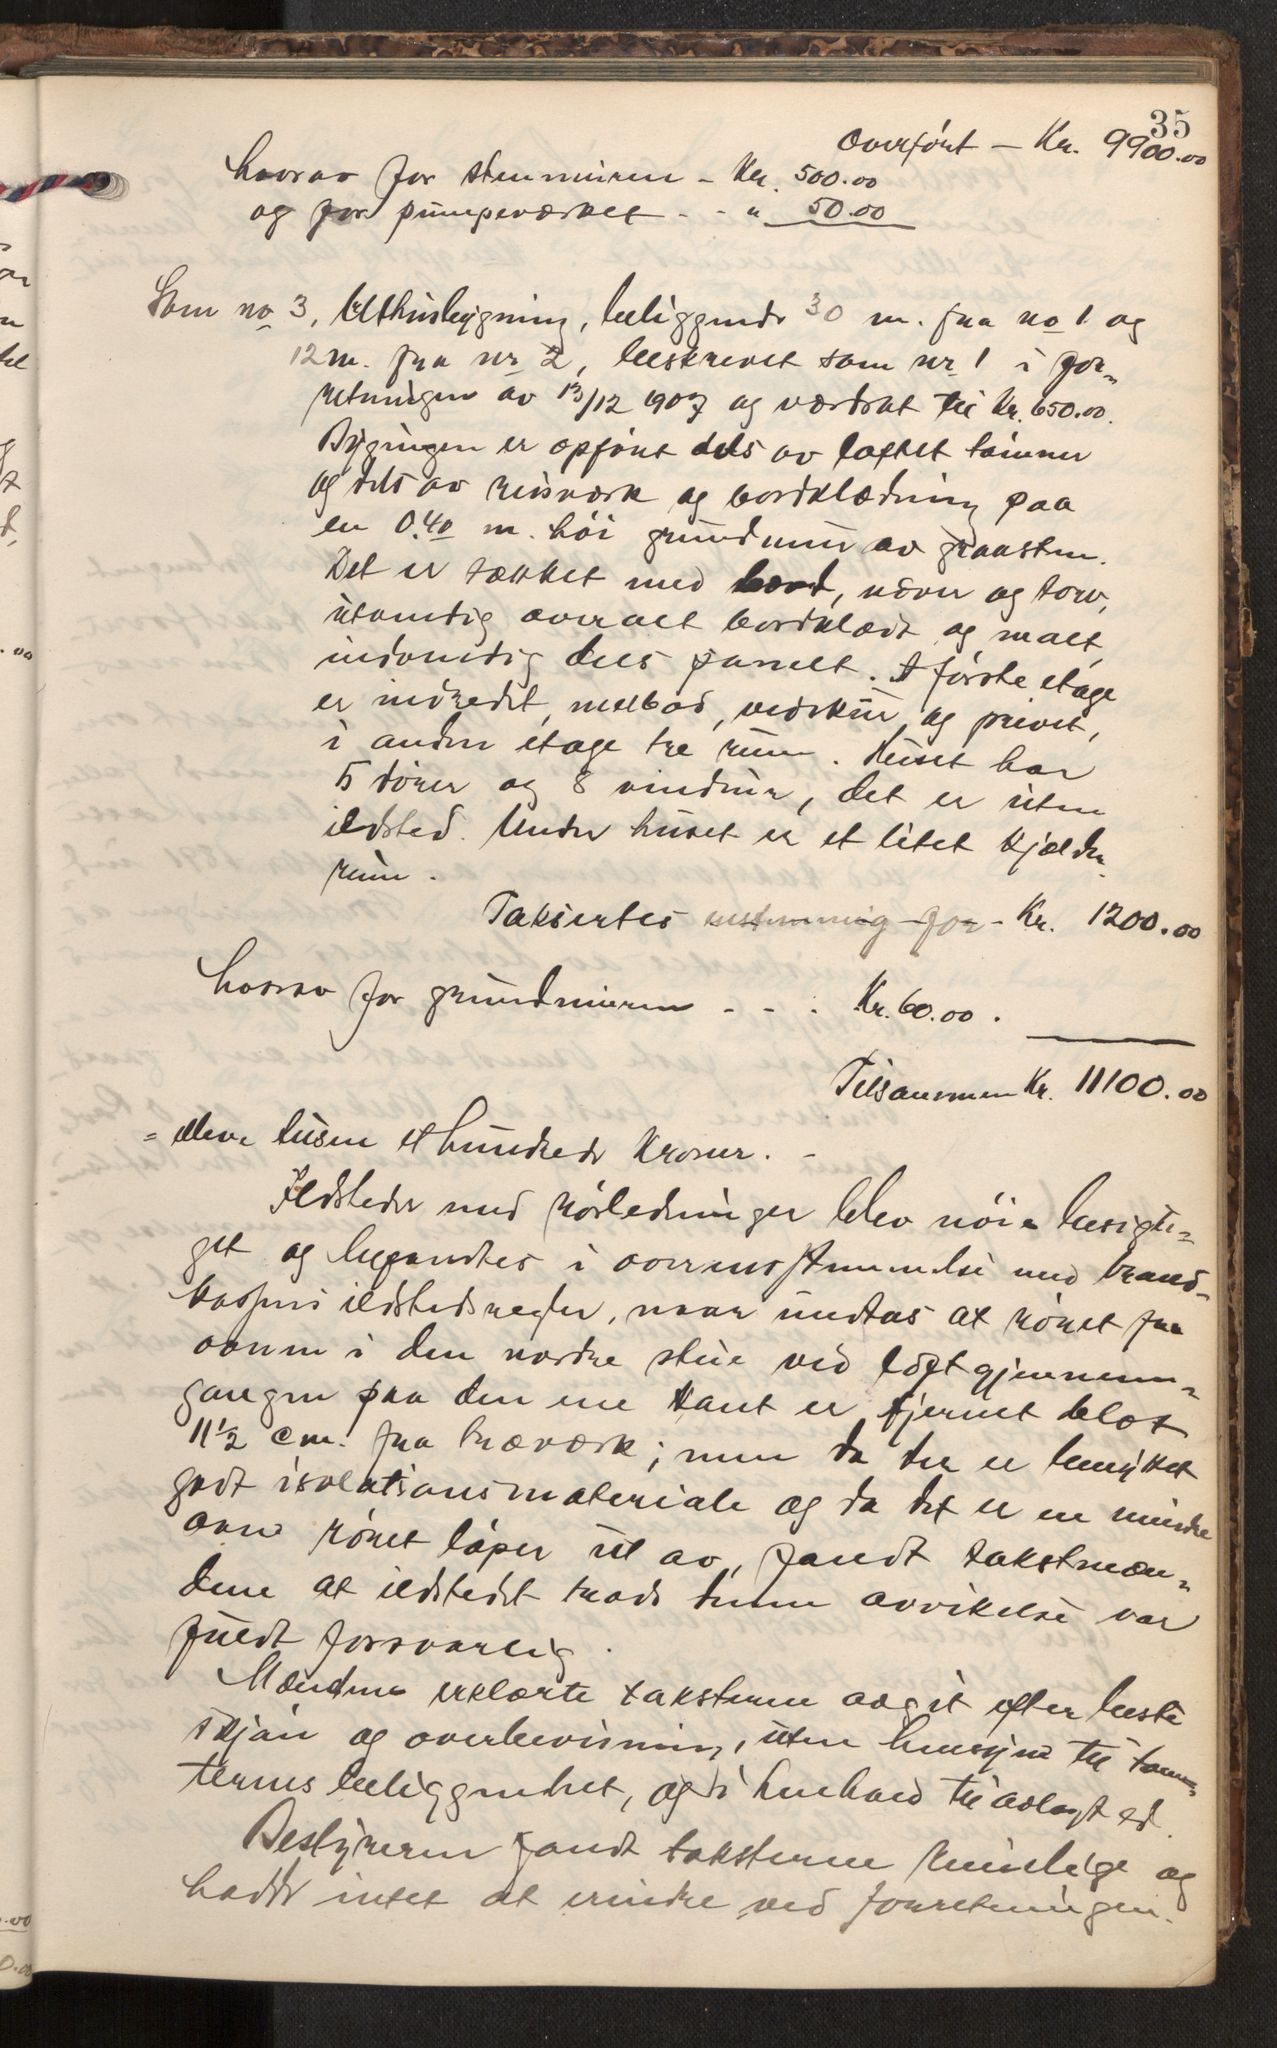 35
Overført – Kr. 9900.00
hvorav for stenmuren – Kr. 500.00
og for pumpeværket - - " 50.00
Som no 3, Uthusbygning, beliggende 30 m. fra no 1 og
12 m. fra nr 2, beskrevet som nr 1 i for-
retningen av 13/12 1907 og værdsat til Kr. 650.00.
Bygningen er opført dels av laftet tømmer
og dels av reisværk og bordklædning paa
en 0.40 m. høi grundmur av graasten.
Det er tækket med bord, næver og torv,
utvendig overalt bordklædt og malt,
indvendig dels panelt. I første etage
er indredet, melbod, vedskur og privet,
i anden etage tre rum. Huset har
5 dører og 8 vinduer, det er uten
ildsted. Under huset er et litet kjælder-
rum.
Taksertes for – Kr. 1200.00
hvorav for grundmuren - - . Kr. 60.00.
Tilsammen Kr. 11100.00
= elleve tusen et hundrede kroner. –
Ildsteder med rørledninger blev nøie besigti-
get og befandtes i overensstemmelse med brand-
kassens ildstedsregler, naar undtas at røret fra
ovnen i den nordre stue ved loftgjennem-
gangen paa den ene kant er fjernet blot
11½ cm. fra træværk; men da der er benyttet
godt isolationsmateriale og da det er en mindre
ovn røret løper ut av, fandt takstmæn-
dene at ildstedet trods denne avvikelse var
fuldt forsvarlig.
Mændene erklærte taksterne avgit efter beste
skjøn og overbevisning, uten hensyn til tom-
ternes beliggenhet, og i henhold til avlagt ed.
Bestyreren fandt taksterne rimelige og
hadde intet at erindre ved forretningen.